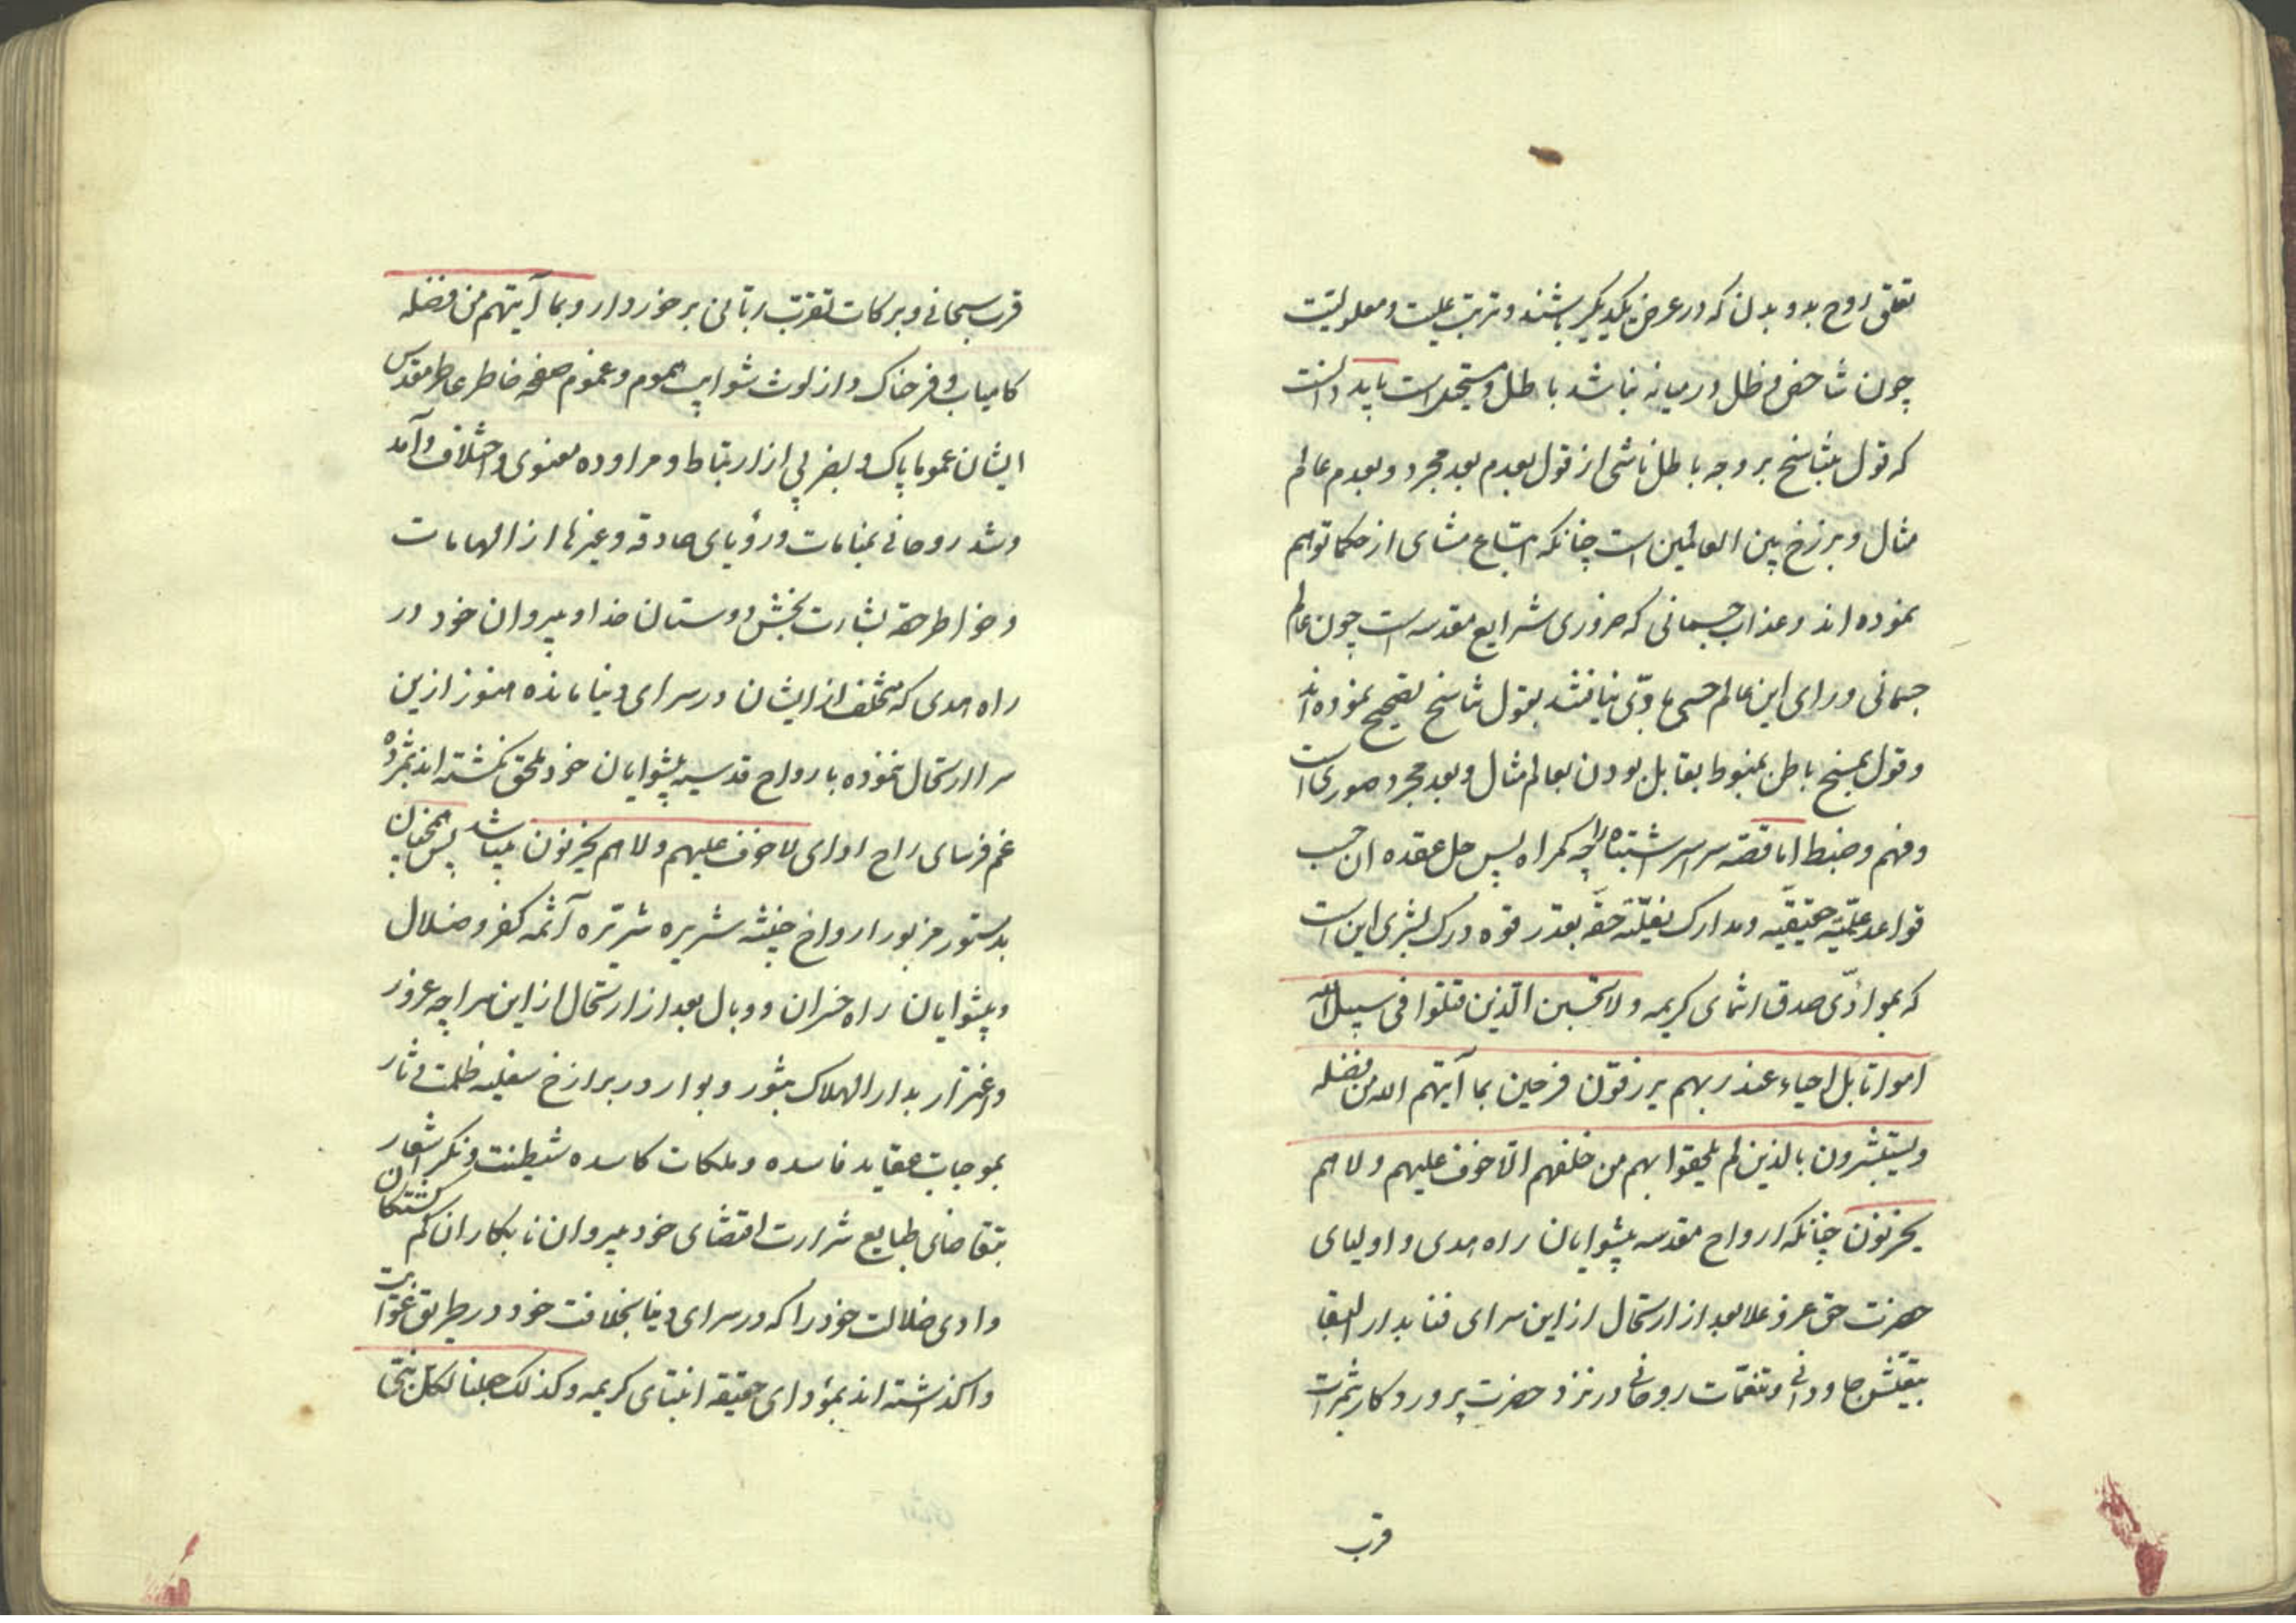 تعلق روح بدو بدن که در عرض یکدیگر باشند و ترتب علیت و معلولیت
چون شاخص و ظل در میانه نباشد باطل و مستحیل است باید دانست
که قول بتناسخ بر وجه باطل ناشی از قول بعدم بعد مجرد و بعدم عالم
مثال و برزخ بین العالمین است چنانکه اتباع مشای از حکما توهم
نموده اند و عذاب جسمانی که ضروری شرایع مقدسه است چون عالم
جسمانی ورای این عالم حسی مادّی نیافتند بقول تناسخ تصحیح نموده اند
و قول بمسخ باطن منوط بقابل بودن بعالم مثال و بعد مجرد صوری است
و فهم و ضبط اما قصه سراسر اشتباه را چه کمراه پس حل عقده ان حسب
قواعد علمیّه حقیقیّه و مدارک نقلیّه حقّه بقدر قوه درک بشری این است
که بموادّی صدق انتمای کریمه ولا تحسبن الذین قتلوا فی سبیل الله
امواتا بل احیاء عند ربهم یرزقون فرحین بما آتیهم الله من فضله
ویستبشرون بالذین لم یلحقوا بهم من خلفهم الّا خوف علیهم ولا هم
یحزنون چنانکه ارواح مقدسه پیشوایان راه هدی و اولیای
حضرت حق عز و علا بعد از ارتحال از این سرای فنا بدار البقا
بتعیّش جاودانی و تنعّمات روحانی در نزد حضرت پروردکار بثمرات
قرب
قرب سبحانی و برکات تقرّب ربّانی برخوردار و بما آتیهم من فضله
کامیاب و فرحناک و از لوث شوایب هموم و غموم صفحه خاطر عاطر مقدس
ایشان عموما پاک و بضربی از ارتباط و مراوده معنوی و اختلاف و آمد
و شد روحانی بمنامات و رؤیای صادقه و غیرها از الهامات
و خواطر حقه بشارت بخش دوستان خدا و پیروان خود در
راه هدی که متخلف از ایشان در سرای دنیا مانده هنوز ازین
سرا ارتحال ننموده بارواح قدسیه پیشوایان خود ملحق نکشته اند بمژده
غم فرسای راح ادای لا خوف علیهم ولا هم یحزنون میباشند پس همچنان
بدستور مزبور ارواح خبیثه شریره شرّیره آئمه کفر و ضلال
و پیشوایان راه خسران و وبال بعد از ارتحال از این سراچه غرور
و اغترار بدار الهلاک بثور و بوار در برازخ سفلیه ظلمت دثار
بموجبات عقاید فاسده و ملکات کاسده شیطنت و نکر اشعار
بتقاضای طبایع شرارت اقتضای خود پیروان نابکاران کم کشتکان
وادی ضلالت خود را که در سرای دنیا بخلافت خود در طریق غوایت
واکذاشته اند بمؤدای حقیقه انتمای کریمه وکذلک جعلنا لکلّ نبیّ